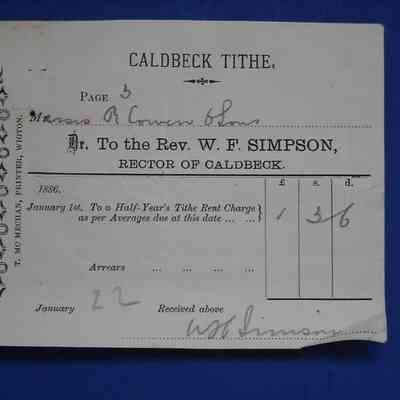 CALDBECK TITHE.
PAGE 3
Messrs R Cowen & Sons
Dr. To the Rev. W. F. SIMPSON,
RECTOR OF CALDBECK.
1886. £ s. d.
January 1st, To a Half-Year's Tithe Rent Charge
as per Averages due at this date ... ... } 1 3 6
Arrears ... ... ... ...
January 22 Received above
W F Simpson
T. MC MECHAN, PRINTER, WIGTON.